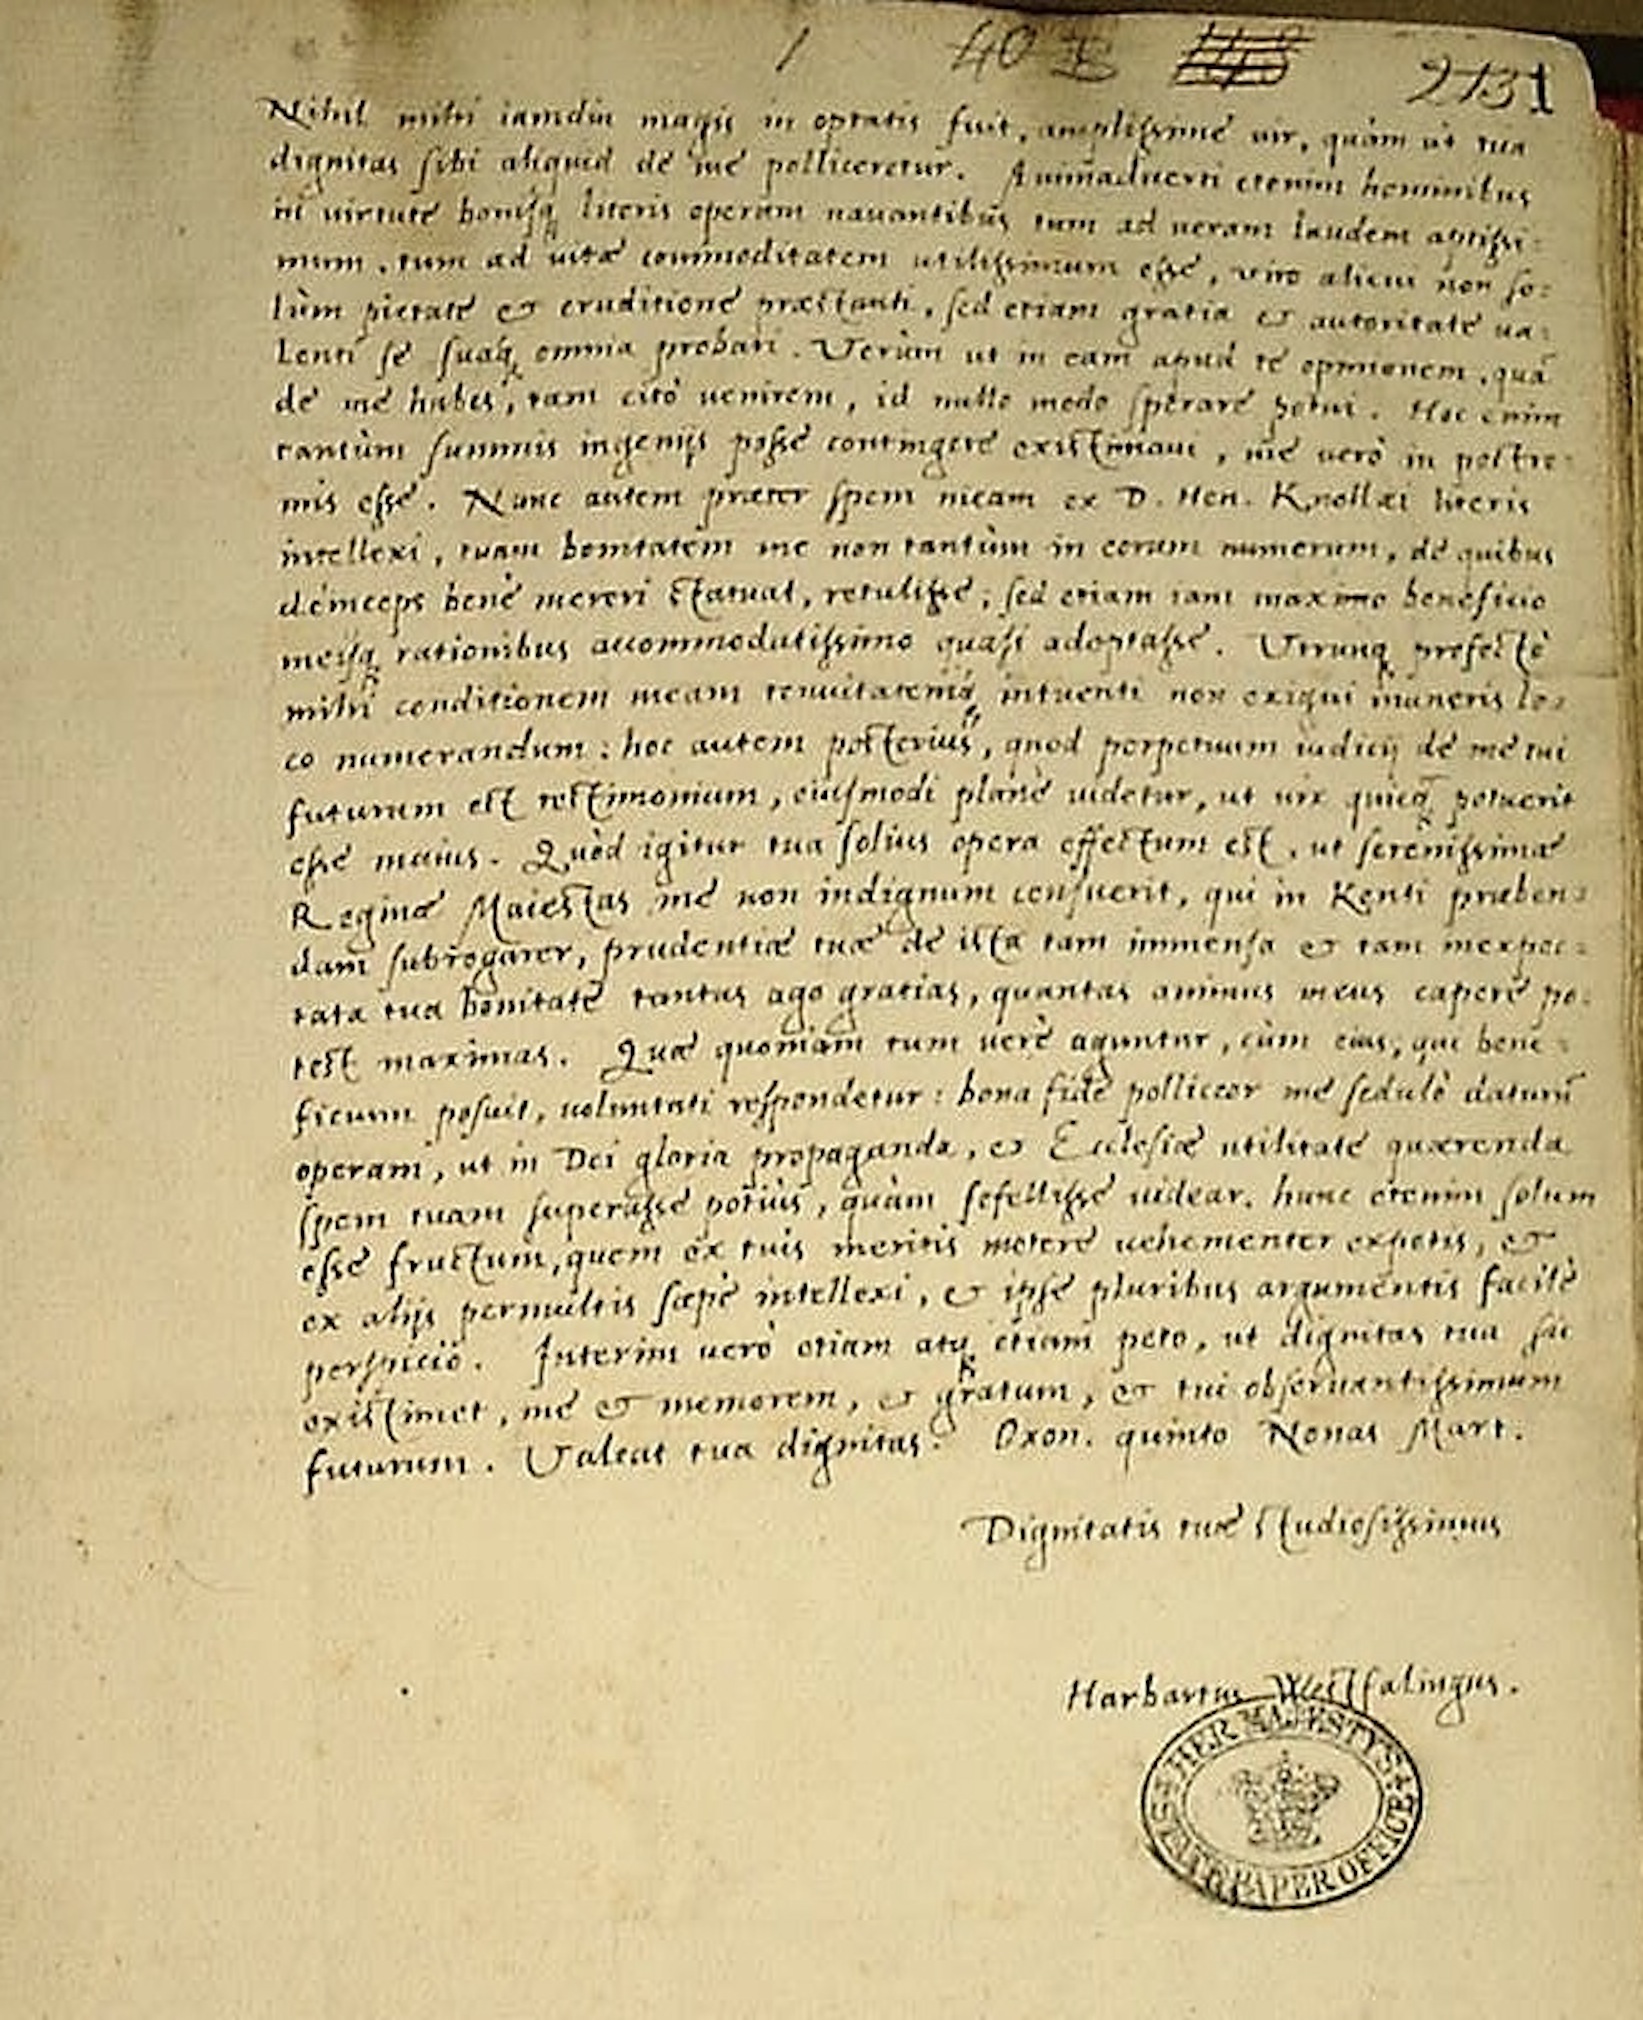 1 40 213 1
Nihil mihi iamdiu magis in optatis fuit, amplissime uir, quàm ut tua
dignitas sibi aliquid de me polliceretur. Animaduerti etenim hominibus
in uirtute bonisq literis operam nauantibus tum ad ueram laudem aptissi:
mum, tum ad uitæ commoditatem utilissimum esse, uiro alicui non so:
lùm pietate & eruditione præstanti, sed etiam gratia & autoritate ua:
lenti se suaq omnia probari. Verùm ut in eam apud te opinionem, quã
de me habes, tam citò uenirem, id nullo modo sperare potui. Hoc enim
tantùm summis ingenijs posse contingere existimaui, me uerò in postre:
mis esse. Nunc autem præter spem meam ex D. Hen. Knollæi literis
intellexi, tuam bonitatem me non tantùm in eorum numerum, de quibus
deinceps benè mereri statuat, retulisse, sed etiam iam maximo beneficio
meisq rationibus accommodatissimo quasi adoptasse. Vtrunq profectò
mihi conditionem meam tenuitatemq intuenti non exigui muneris lo:
co numerandum: hoc autem posterius, quod perpetuum iudicij de me tui
futurum est testimonium, eiusmodi planè uidetur, ut uix quicq potuerit
esse maius. Quòd igitur tua solius opera effectum est, ut serenissimæ
Reginæ Maiestas me non indignum censuerit, qui in Kenti præben:
dam subrogarer, prudentiæ tuæ de ista tam immensa & tam inexpec:
tata tua bonitate tantas ago gratias, quantas animus meus capere po:
test maximas. Quæ quoniam tum uerè aguntur, cùm eius, qui bene:
ficium posuit, uoluntati respondetur: bona fide polliceor me sedulò daturũ
operam, ut in Dei gloria propaganda, & Ecclesiæ utilitate quærenda
spem tuam superasse potius, quàm fefellisse uidear. hunc etenim solum
esse fructum, quem ex tuis meritis metere uehementer expetis, &
ex alijs permultis sæpè intellexi, & ipse pluribus argumentis facilè
perspicio. Interim uerò etiam atq etiam peto, ut dignitas tua sic
existimet, me & memorem, & gratum, & tui obseruantissimum
futurum. Valeat tua dignitas. Oxon. quinto Nonas Mart.
Dignitatis tuæ studiosissimus
Harbartus Westfalingus.
HER MAJESTY'S STATE PAPER OFFICE